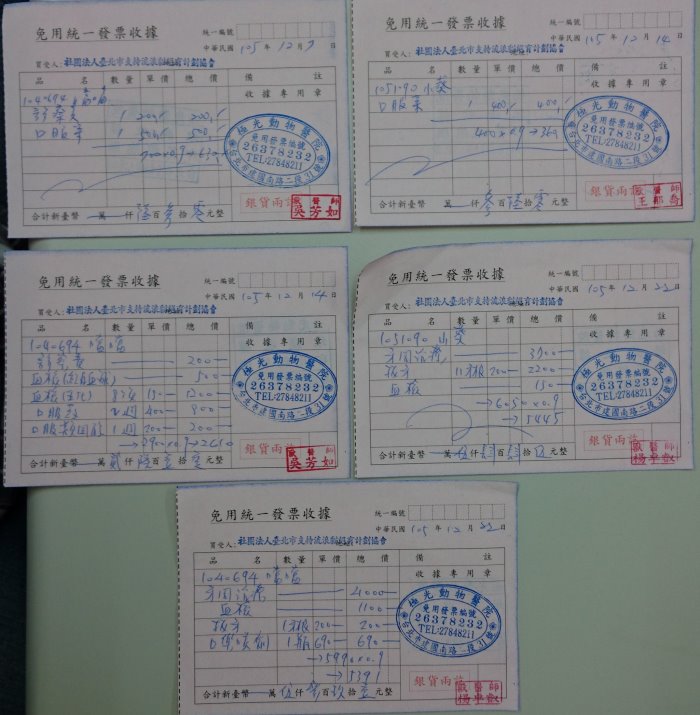 免用統一發票收據
統一編號
中華民國 105 年 12 月 7 日
買受人：社團法人臺北市支持流浪貓絕育計劃協會
品 名 數量 單價 總價 備 註
收據專用章
104-694 嗑嗑
診察費 1 200 200
口服藥 1 500 500
700×0.9→630
極光動物醫院
免用發票編號
26378232
TEL:27848211
台北市建國南路二段31號
銀貨兩訖
獸醫師
吳芳如
合計新臺幣 萬 仟 陸 百 參 拾 零 元整
免用統一發票收據
統一編號
中華民國 105 年 12 月 14 日
買受人：社團法人臺北市支持流浪貓絕育計劃協會
品 名 數量 單價 總價 備 註
收據專用章
105-1090 小葵
口服藥 1 400 400
400×0.9→360
極光動物醫院
免用發票編號
26378232
TEL:27848211
台北市建國南路二段31號
銀貨兩訖
獸醫師
合計新臺幣 萬 仟 參 百 陸 拾 零 元整
免用統一發票收據
統一編號
中華民國 105 年 12 月 14 日
買受人：社團法人臺北市支持流浪貓絕育計劃協會
品 名 數量 單價 總價 備 註
收據專用章
104-694 嗑嗑
診察費 200
500
血檢(生化) 8項 150 1200
口服藥 2週 400 800
200 200
2610
極光動物醫院
免用發票編號
26378232
TEL:27848211
台北市建國南路二段31號
銀貨兩訖
獸醫師
吳芳如
合計新臺幣 萬 貳 仟 陸 百 壹 拾 零 元整
免用統一發票收據
統一編號
中華民國 105 年 12 月 22 日
買受人：社團法人臺北市支持流浪貓絕育計劃協會
品 名 數量 單價 總價 備 註
收據專用章
105-1090 小葵
牙周治療 3700
拔牙 11根 200 2200
血檢 150
→6050×0.9
→5445
極光動物醫院
免用發票編號
26378232
TEL:27848211
台北市建國南路二段31號
銀貨兩訖
獸醫師
楊卓叡
合計新臺幣 萬 伍 仟 肆 百 肆 拾 伍 元整
免用統一發票收據
統一編號
中華民國 105 年 12 月 22 日
買受人：社團法人臺北市支持流浪貓絕育計劃協會
品 名 數量 單價 總價 備 註
收據專用章
104-694 嗑嗑
牙周治療 4000
血檢 1100
拔牙 1根 200 200
1瓶 690 690
→5990×0.9
→5391
極光動物醫院
免用發票編號
26378232
TEL:27848211
台北市建國南路二段31號
銀貨兩訖
獸醫師
楊卓叡
合計新臺幣 萬 伍 仟 參 百 玖 拾 壹 元整